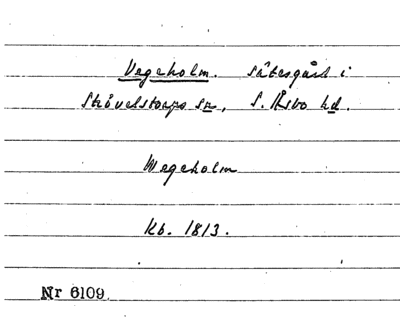 Vegeholm. Sätesgård i
Strövelstorps sn, S. Åsbo hd.
Wegeholm
Kb. 1813.
Nr 6109